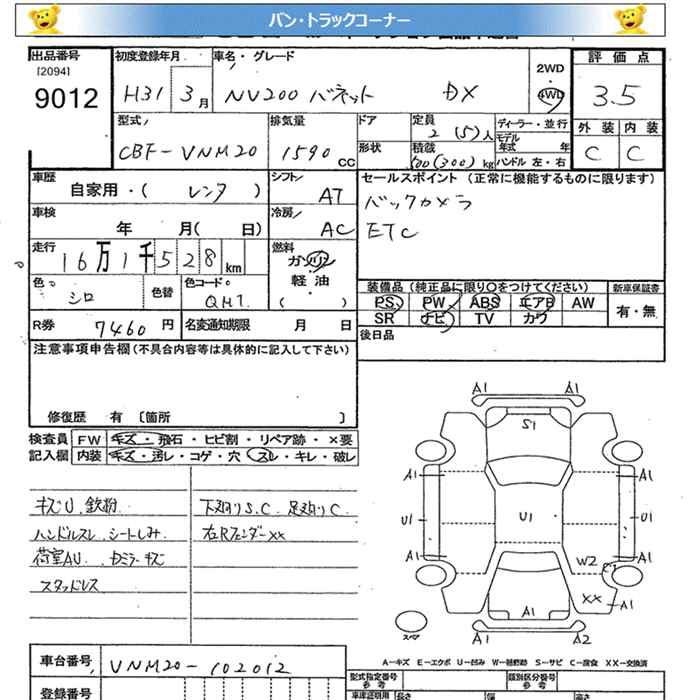 バン・トラックコーナー
出品番号
[2094]
9012
初度登録年月
H31 3月
車名・グレード
NV200 バネット DX
2WD
・
4WD
評価点
3.5
外装 内装
C C
型式
CBF-VNM20
排気量
1590 cc
ドア
形状
定員
2 (5) 人
積載
500(300) kg
ディーラー・並行
モデル年式 年
ハンドル 左・右
車歴
自家用・( レンタ )
シフト
AT
車検
年 月( 日)
冷房
AC
走行
16万1千528km
燃料
ガソリン
軽油
( )
色
シロ
色替
色コード
QM1
R券 7460 円
名変通知期限 月 日
セールスポイント (正常に機能するものに限ります)
バックカメラ
ETC
装備品 (純正品に限り○をつけてください)
PS PW ABS エアB AW
SR ナビ TV カワ
新車保証書
有・無
後日品
注意事項申告欄(不具合内容等は具体的に記入して下さい)
修復歴 有 〔箇所 〕
検査員記入欄
FW キズ・飛石・ヒビ割・リペア跡・×要
内装 キズ・汚レ・コゲ・穴 スレ・キレ・破レ
キズU 鉄粉
ハンドルスレ シートしみ
荷室AU
スタッドレス
下廻りS.C 足廻りC
右Rフェンダーxx
A1 A1
S1
A1 A1
U1 U1 U1
A1 A1
W2 C1
XX A1
A1
A1 A2
スペア
A-キズ E-エクボ U-凹み W-補修跡 S-サビ C-腐食 XX-交換済
車台番号 VNM20-102012
登録番号
型式指定番号
参考
類別区分番号
参考
車庫証明用 長さ 幅 高さ